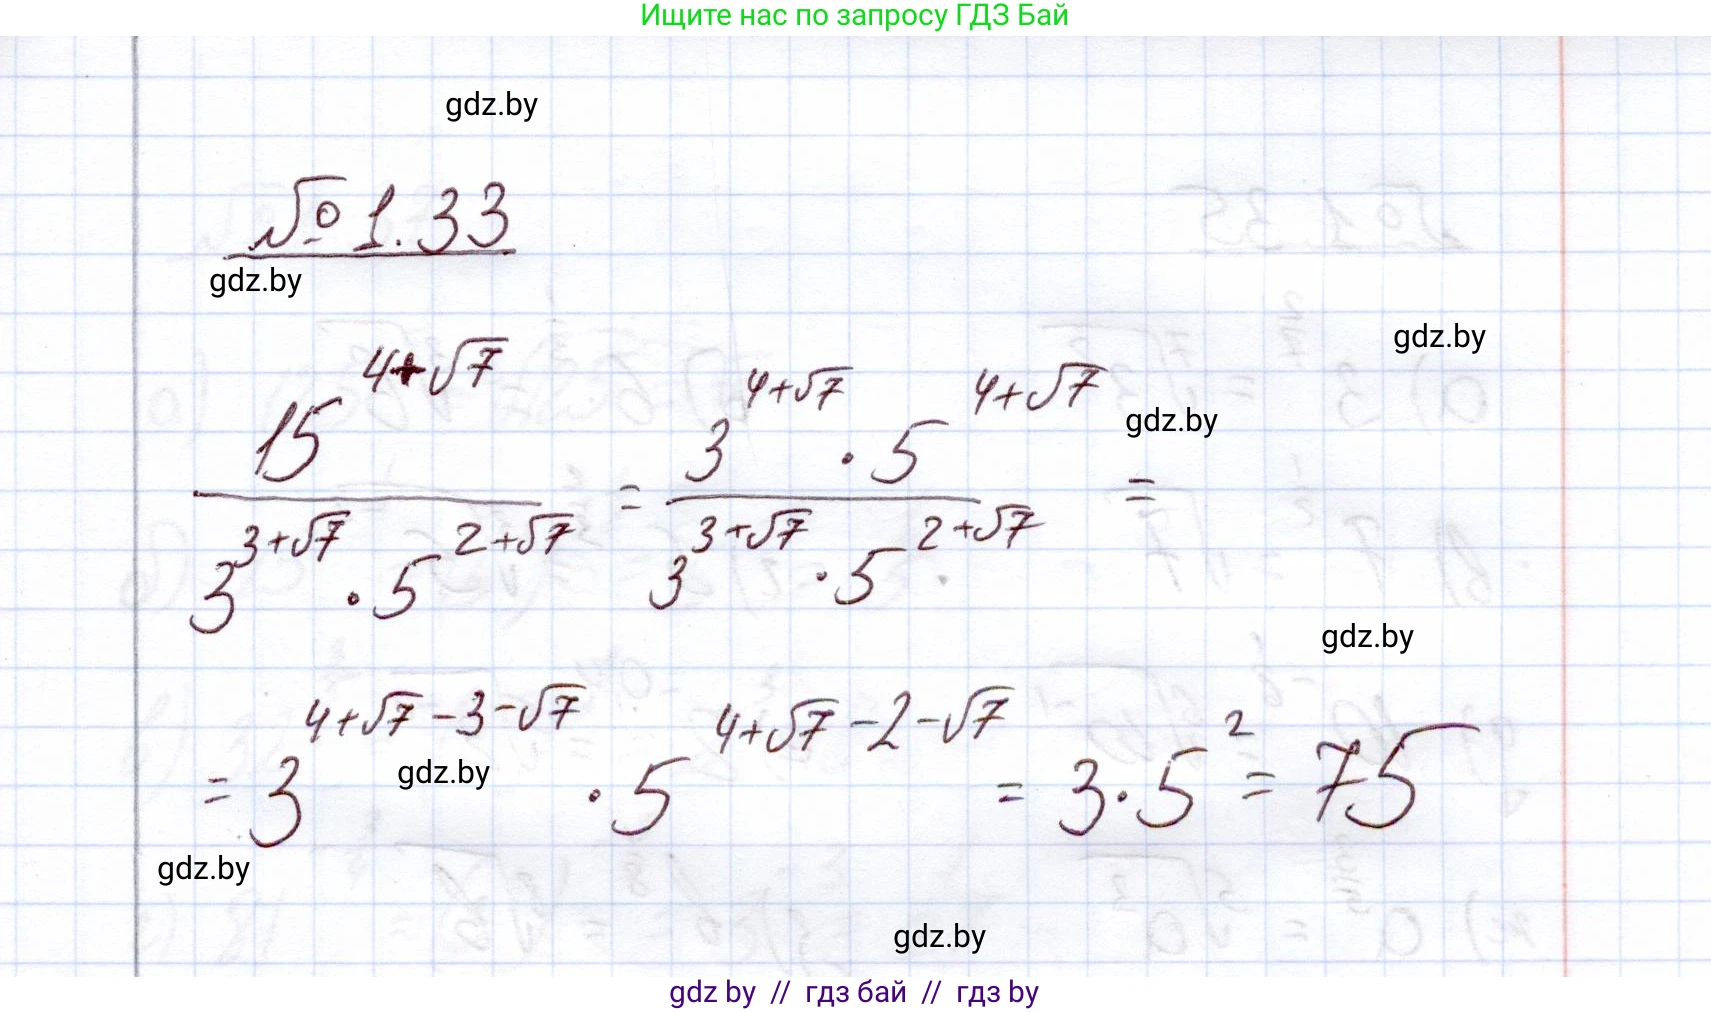 Ищите нас по запросу ГДЗ Бай
gdz.by
№ 1.33
gdz.by
gdz.by
15^{4+√7} / (3^{3+√7} · 5^{2+√7}) = (3^{4+√7} · 5^{4+√7}) / (3^{3+√7} · 5^{2+√7}) =
gdz.by
gdz.by
= 3^{4+√7-3-√7} · 5^{4+√7-2-√7} = 3·5² = 75
gdz.by
gdz.by
gdz.by
gdz by // гдз бай // гдз by